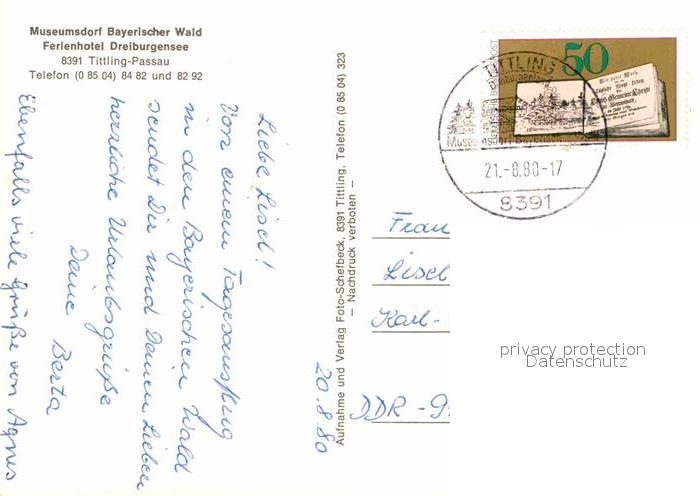 Museumsdorf Bayerischer Wald
Ferienhotel Dreiburgensee
8391 Tittling-Passau
Telefon (0 85 04) 84 82 und 82 92
20.8.80
Liebe Lisel!
Von einem Tagesausflug
in den Bayerischen Wald
sendet Dir und Deinen Lieben
herzliche Urlaubsgrüße
Deine Berta
Ebenfalls viele Grüße von Agnes
Aufnahme und Verlag Foto-Schefbeck, 8391 Tittling, Telefon (0 85 04) 323
– Nachdruck verboten –
50
TITTLING
Museumsdorf Bayerischer
21.-8.80-17
8391
Frau
Lisel
Karl-
DDR - 9
privacy protection
Datenschutz